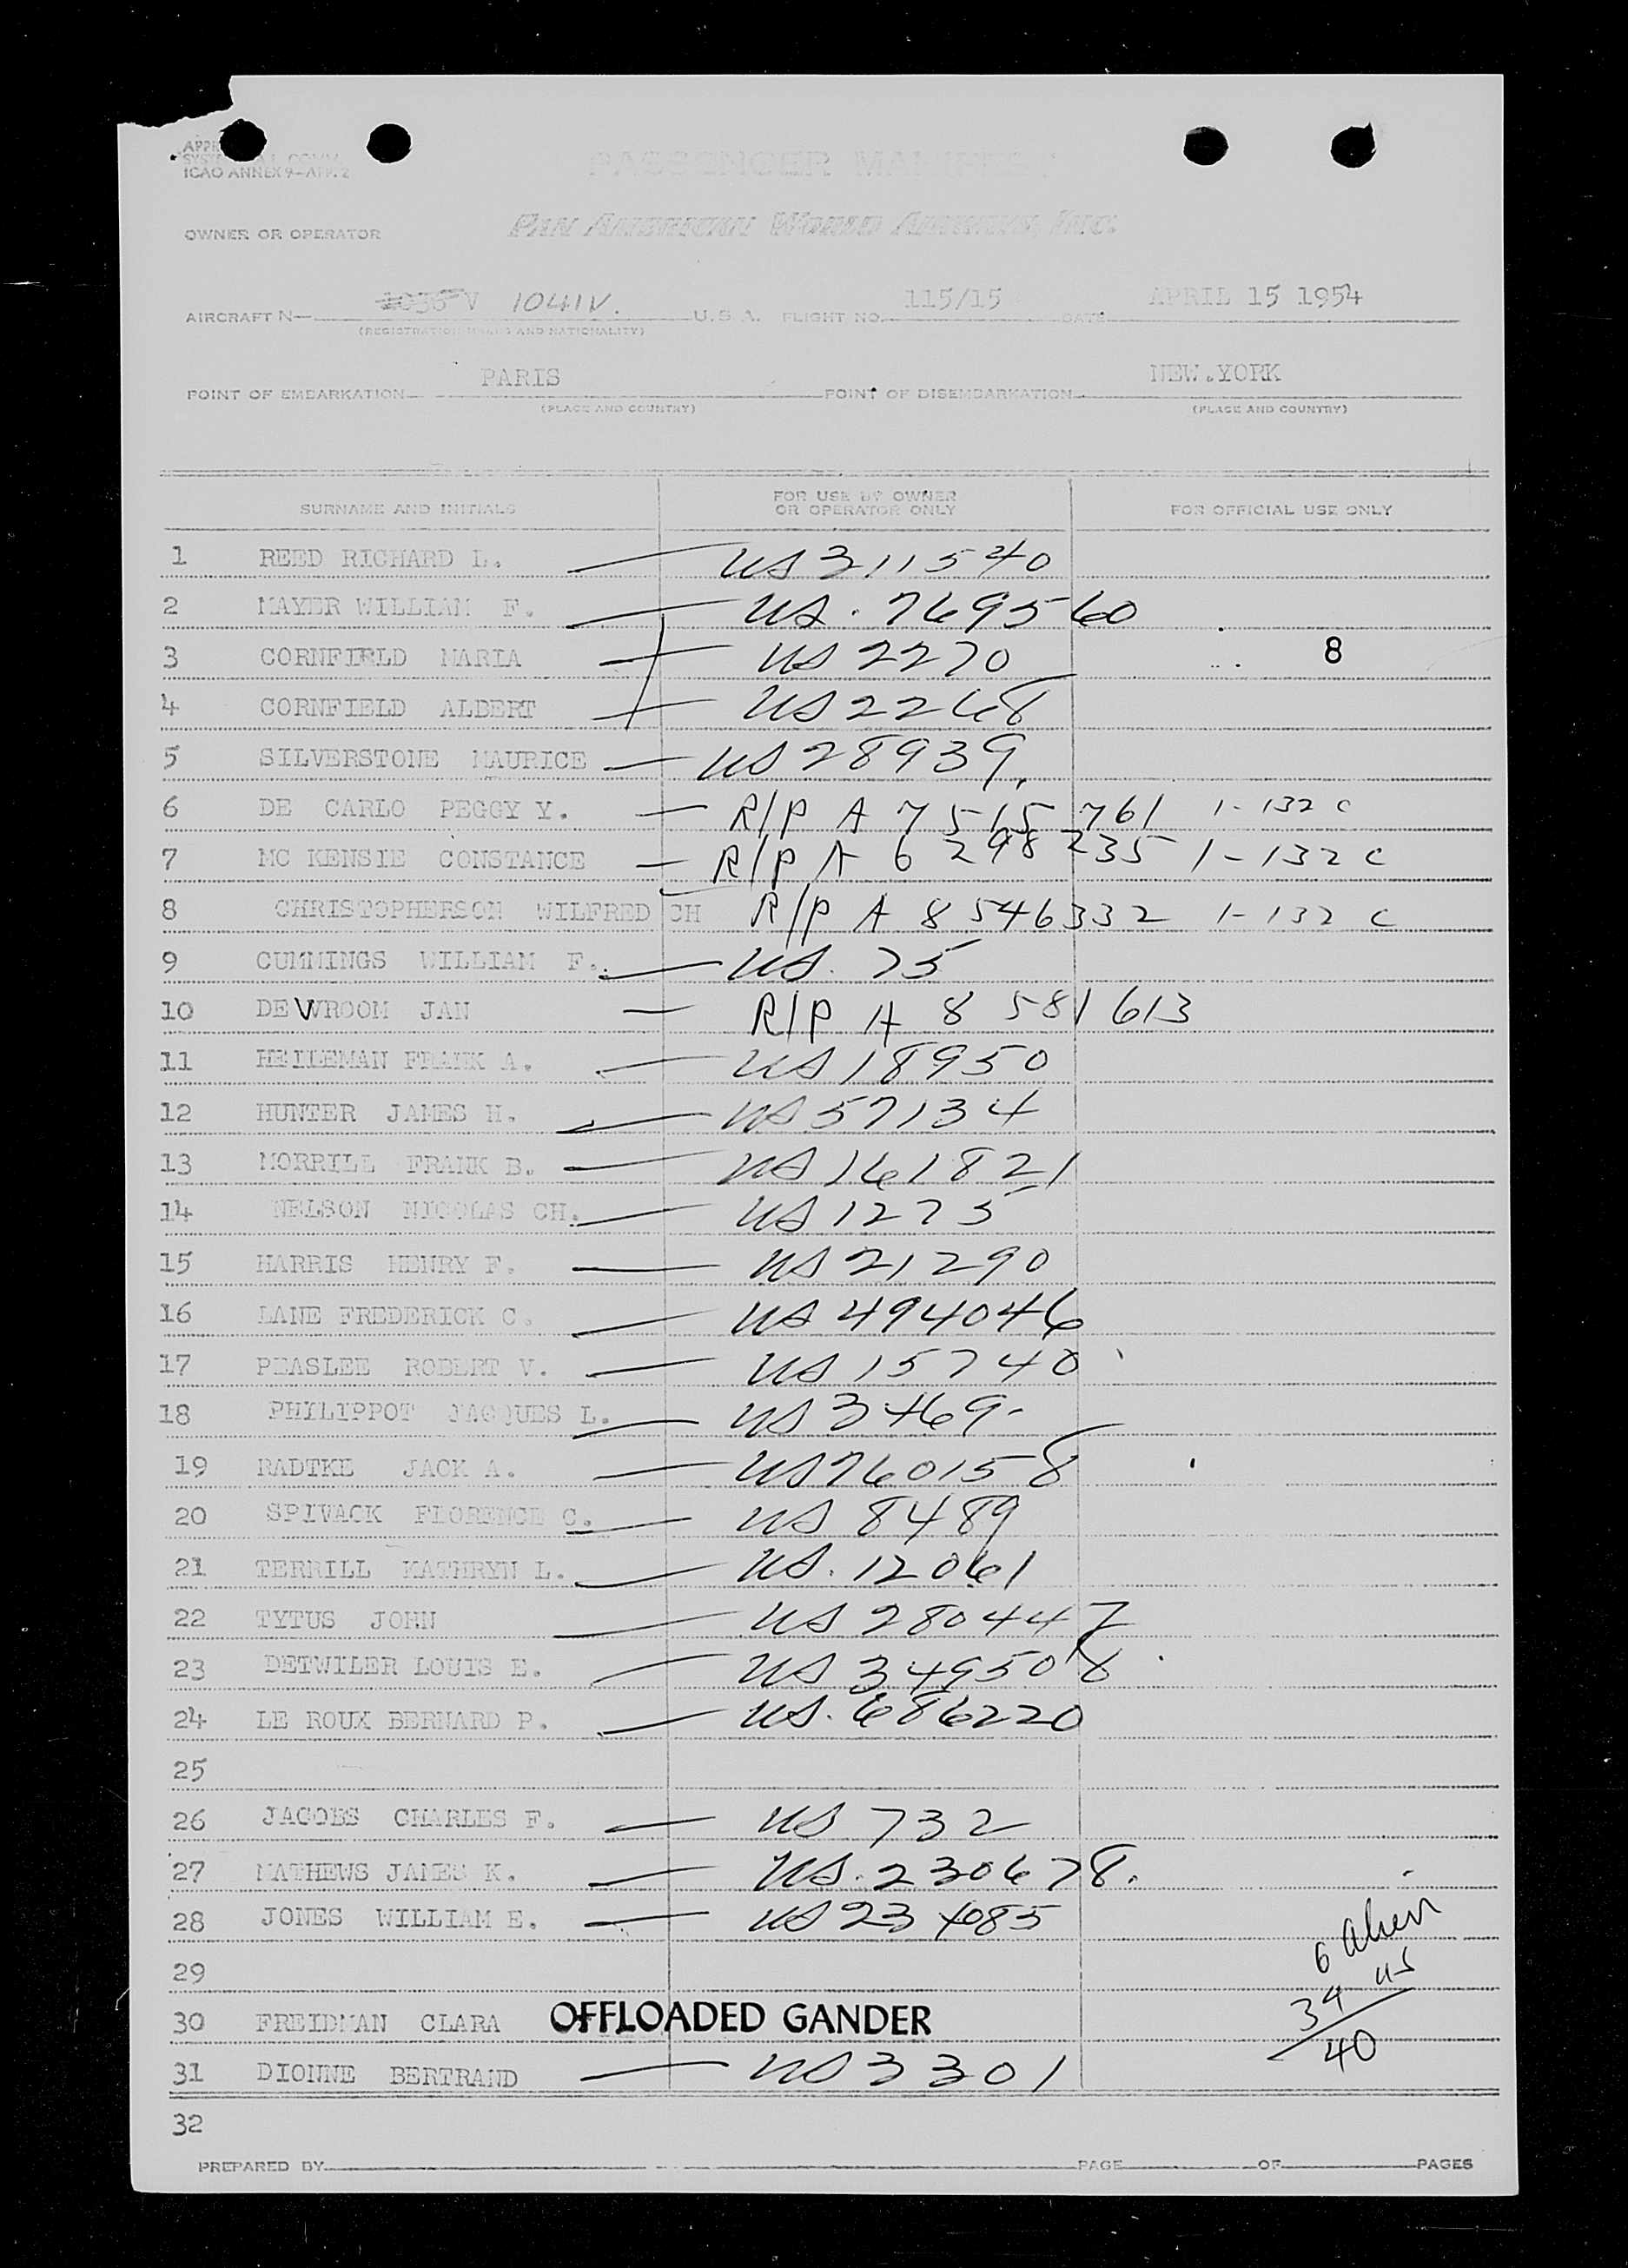 ICAO ANNEX 9—APP. 2
PASSENGER MANIFEST
OWNER OR OPERATOR PAN AMERICAN WORLD AIRWAYS, INC.
AIRCRAFT N— 1036 V 1041V. U.S.A. FLIGHT NO. 115/15 DATE APRIL 15 1954
(REGISTRATION MARKS AND NATIONALITY)
POINT OF EMBARKATION PARIS POINT OF DISEMBARKATION NEW.YORK
(PLACE AND COUNTRY) (PLACE AND COUNTRY)
SURNAME AND INITIALS FOR USE BY OWNER OR OPERATOR ONLY FOR OFFICIAL USE ONLY
1 REED RICHARD L. — US 311540
2 MAYER WILLIAM F. — US. 769560
3 CORNFIELD MARIA — US 2270 8
4 CORNFIELD ALBERT — US 2268
5 SILVERSTONE MAURICE — US 28939
6 DE CARLO PEGGY Y. — R/P A 7 515 761 1-132 c
7 MC KENSIE CONSTANCE — R/P A 6 298 235 1-132 c
8 CHRISTOPHERSON WILFRED CH R/P A 8 546332 1-132 c
9 CUMMINGS WILLIAM F. — US. 75
10 DE VROOM JAN — R/P A 8 581 613
11 HEILEMAN FRANK A. — US 18950
12 HUNTER JAMES H. — US 57134
13 MORRILL FRANK B. — US 161821
14 NELSON NICOLAS CH. — US 1275
15 HARRIS HENRY F. — US 21290
16 LANE FREDERICK C. — US 494046
17 PEASLEE ROBERT V. — US 15740
18 PHILIPPOT JACQUES L. — US 3469-
19 RADTKE JACK A. — US 760158
20 SPIVACK FLORENCE C. — US 8489
21 TERRILL KATHRYN L. — US. 12061
22 TYTUS JOHN — US 280447
23 DETWILER LOUIS E. — US 349508
24 LE ROUX BERNARD P. — US. 686220
25
26 JACOBS CHARLES F. — US 732
27 MATHEWS JAMES K. — US. 230678.
28 JONES WILLIAM E. — US 234085
6 Alien
29
34 US
30 FREIDMAN CLARA OFFLOADED GANDER
40
31 DIONNE BERTRAND — US 3301
32
PREPARED BY PAGE OF PAGES